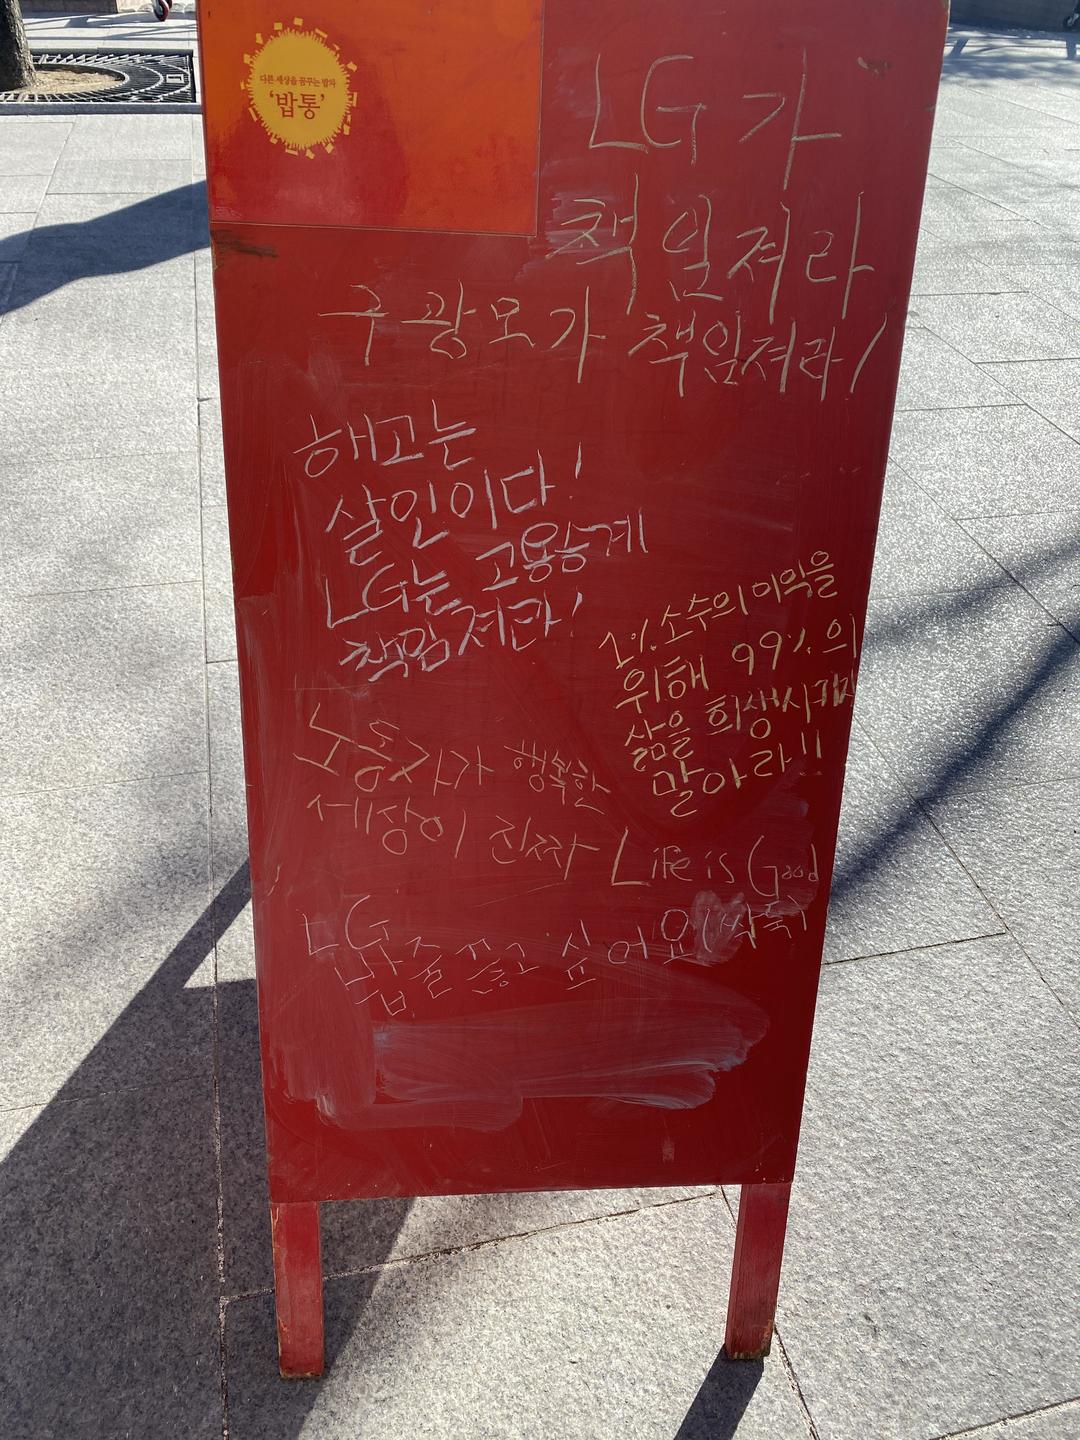 다른 세상을 꿈꾸는 밥차
'밥통'
LG가
책임져라
구광모가 책임져라!
해고는
살인이다!
LG는 고용승계
책임져라!
1% 소수의 이익을
위해 99%의
삶을 희생시키지
말아라!!
노동자가 행복한
세상이 진짜 Life is Good
싶어요